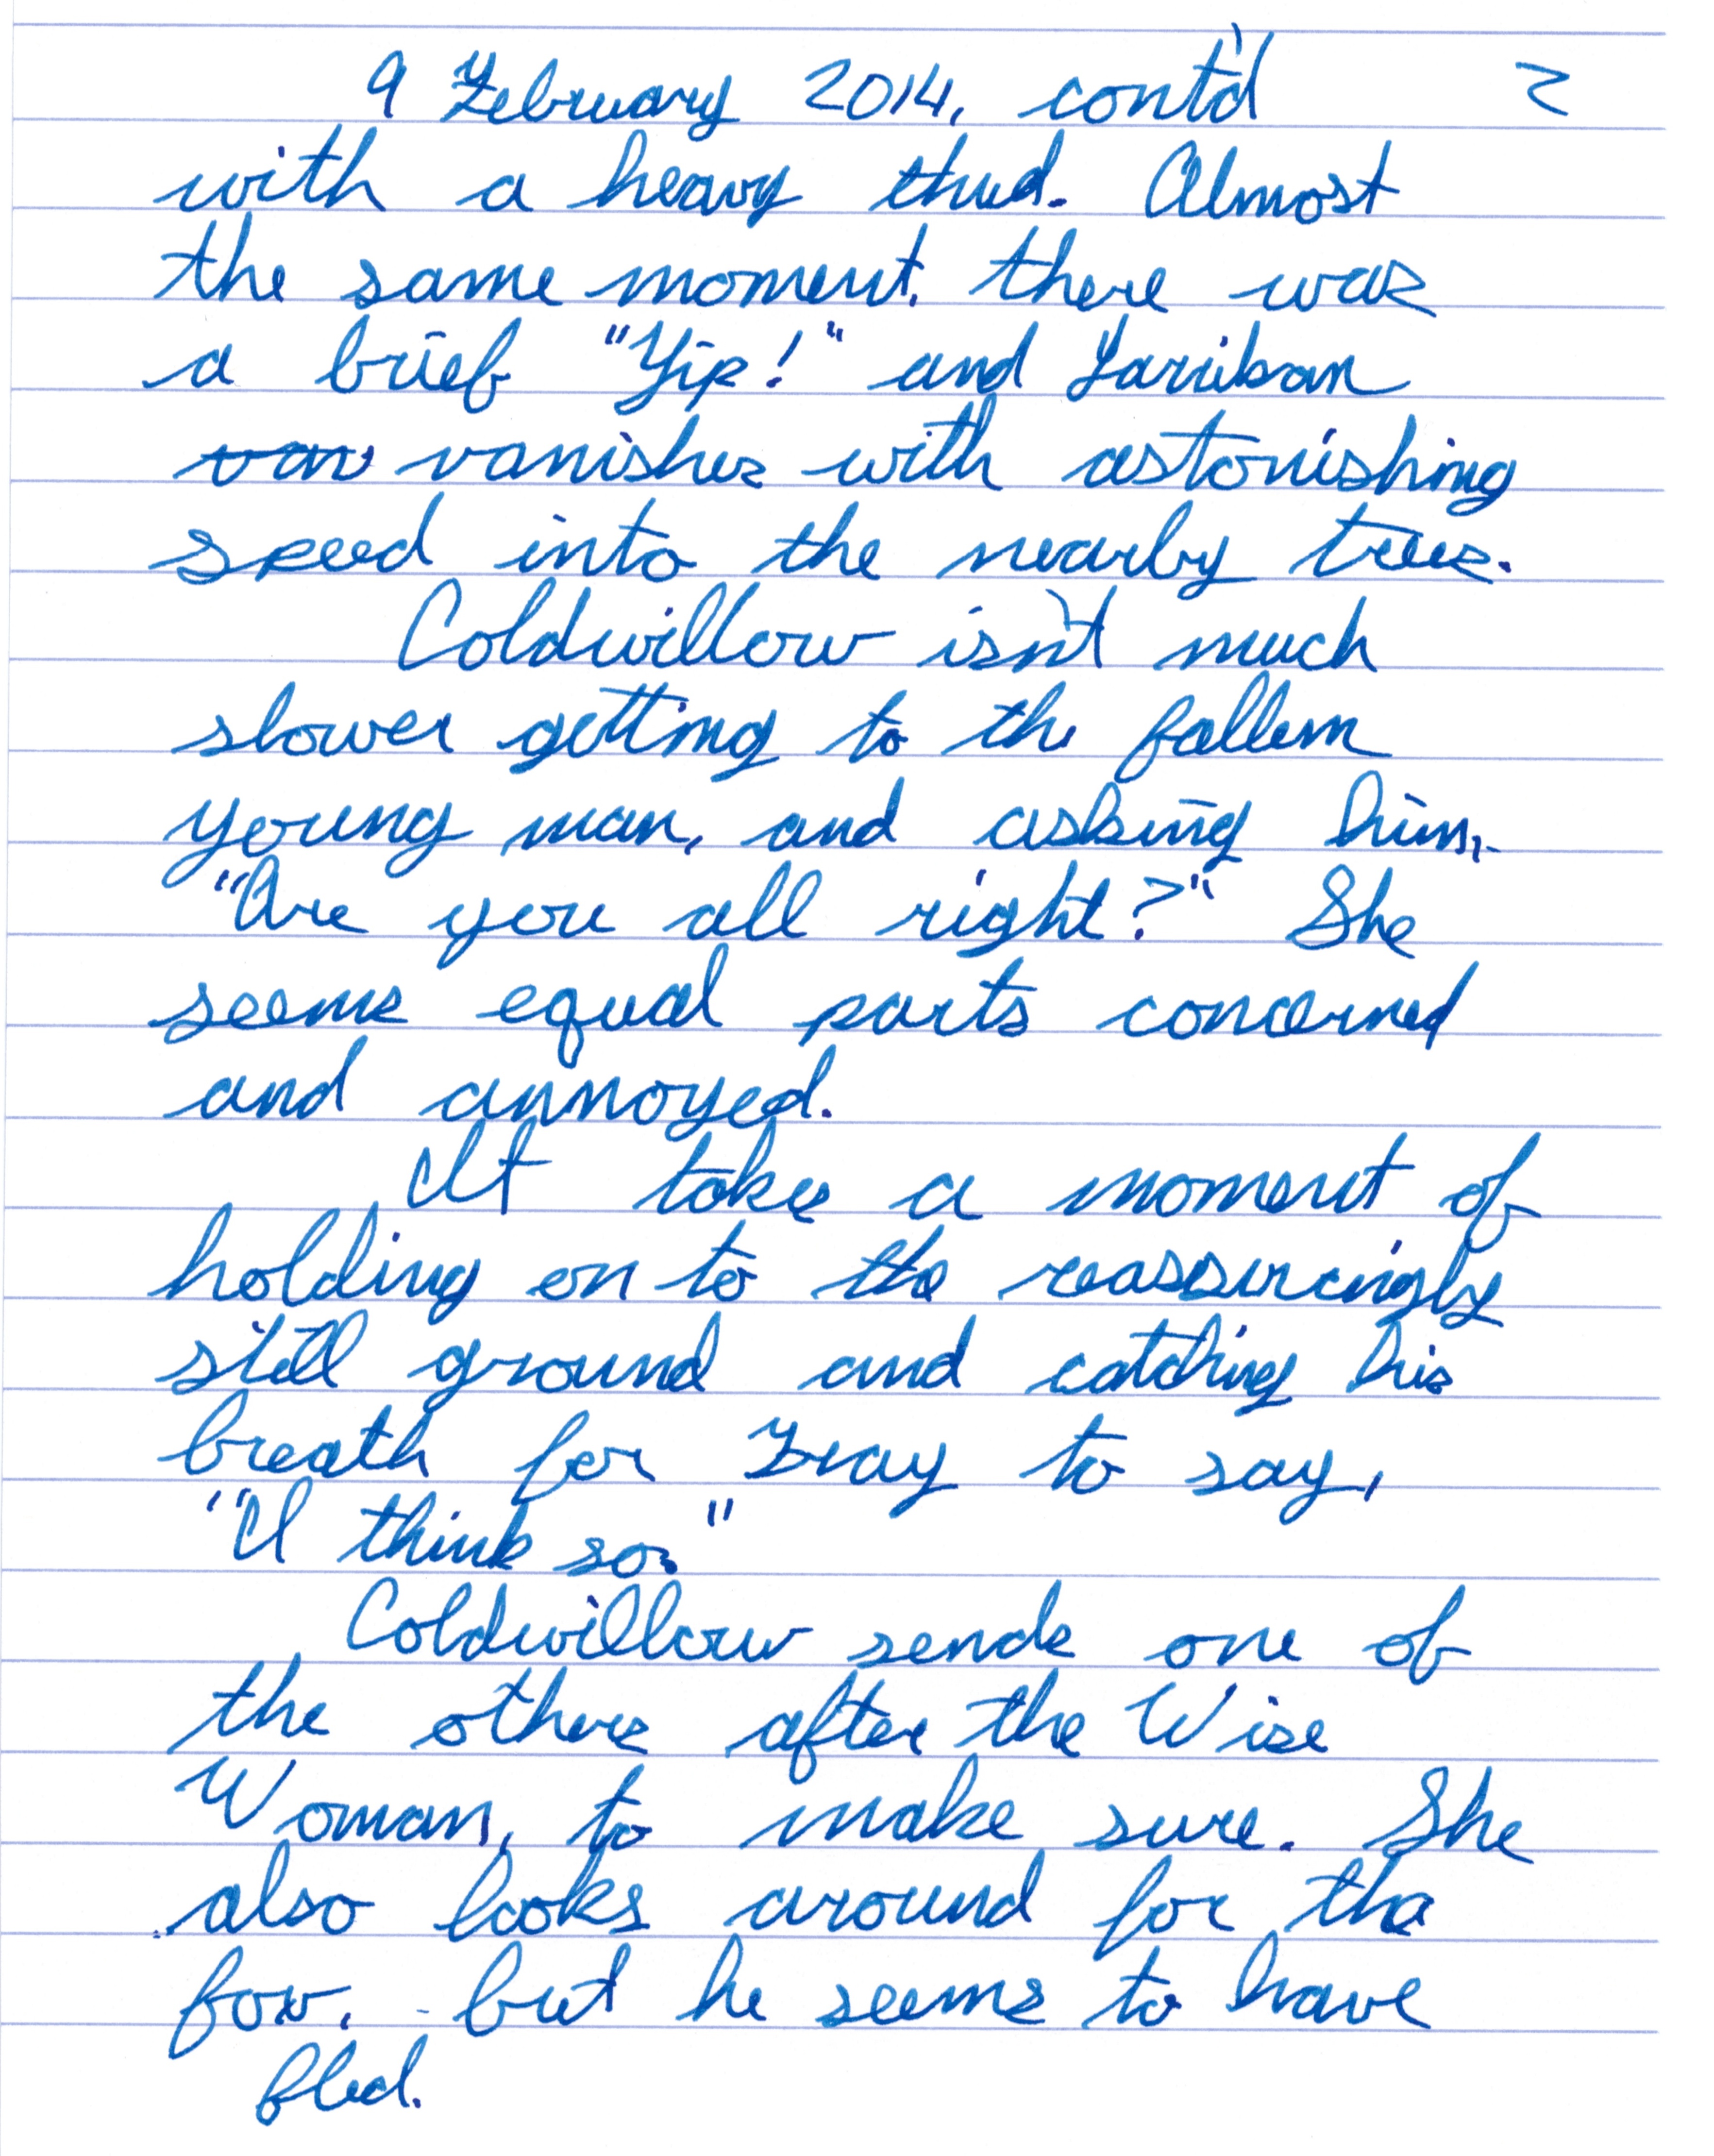 9 February 2014, cont'd 2
with a heavy thud. Almost
the same moment, there was
a brief "Yip!" and
vanishes with astonishing
speed into the nearby trees.
Coldwillow isn't much
slower getting to the fallen
young man, and asking him,
"Are you all right?" She
seems equal parts concerned
and annoyed.
It takes a moment of
holding on to the reassuringly
still ground and catching his
breath for to say,
"I think so."
Coldwillow sends one of
the others after the Wise
Woman, to make sure. She
also looks around for the
fox, but he seems to have
fled.